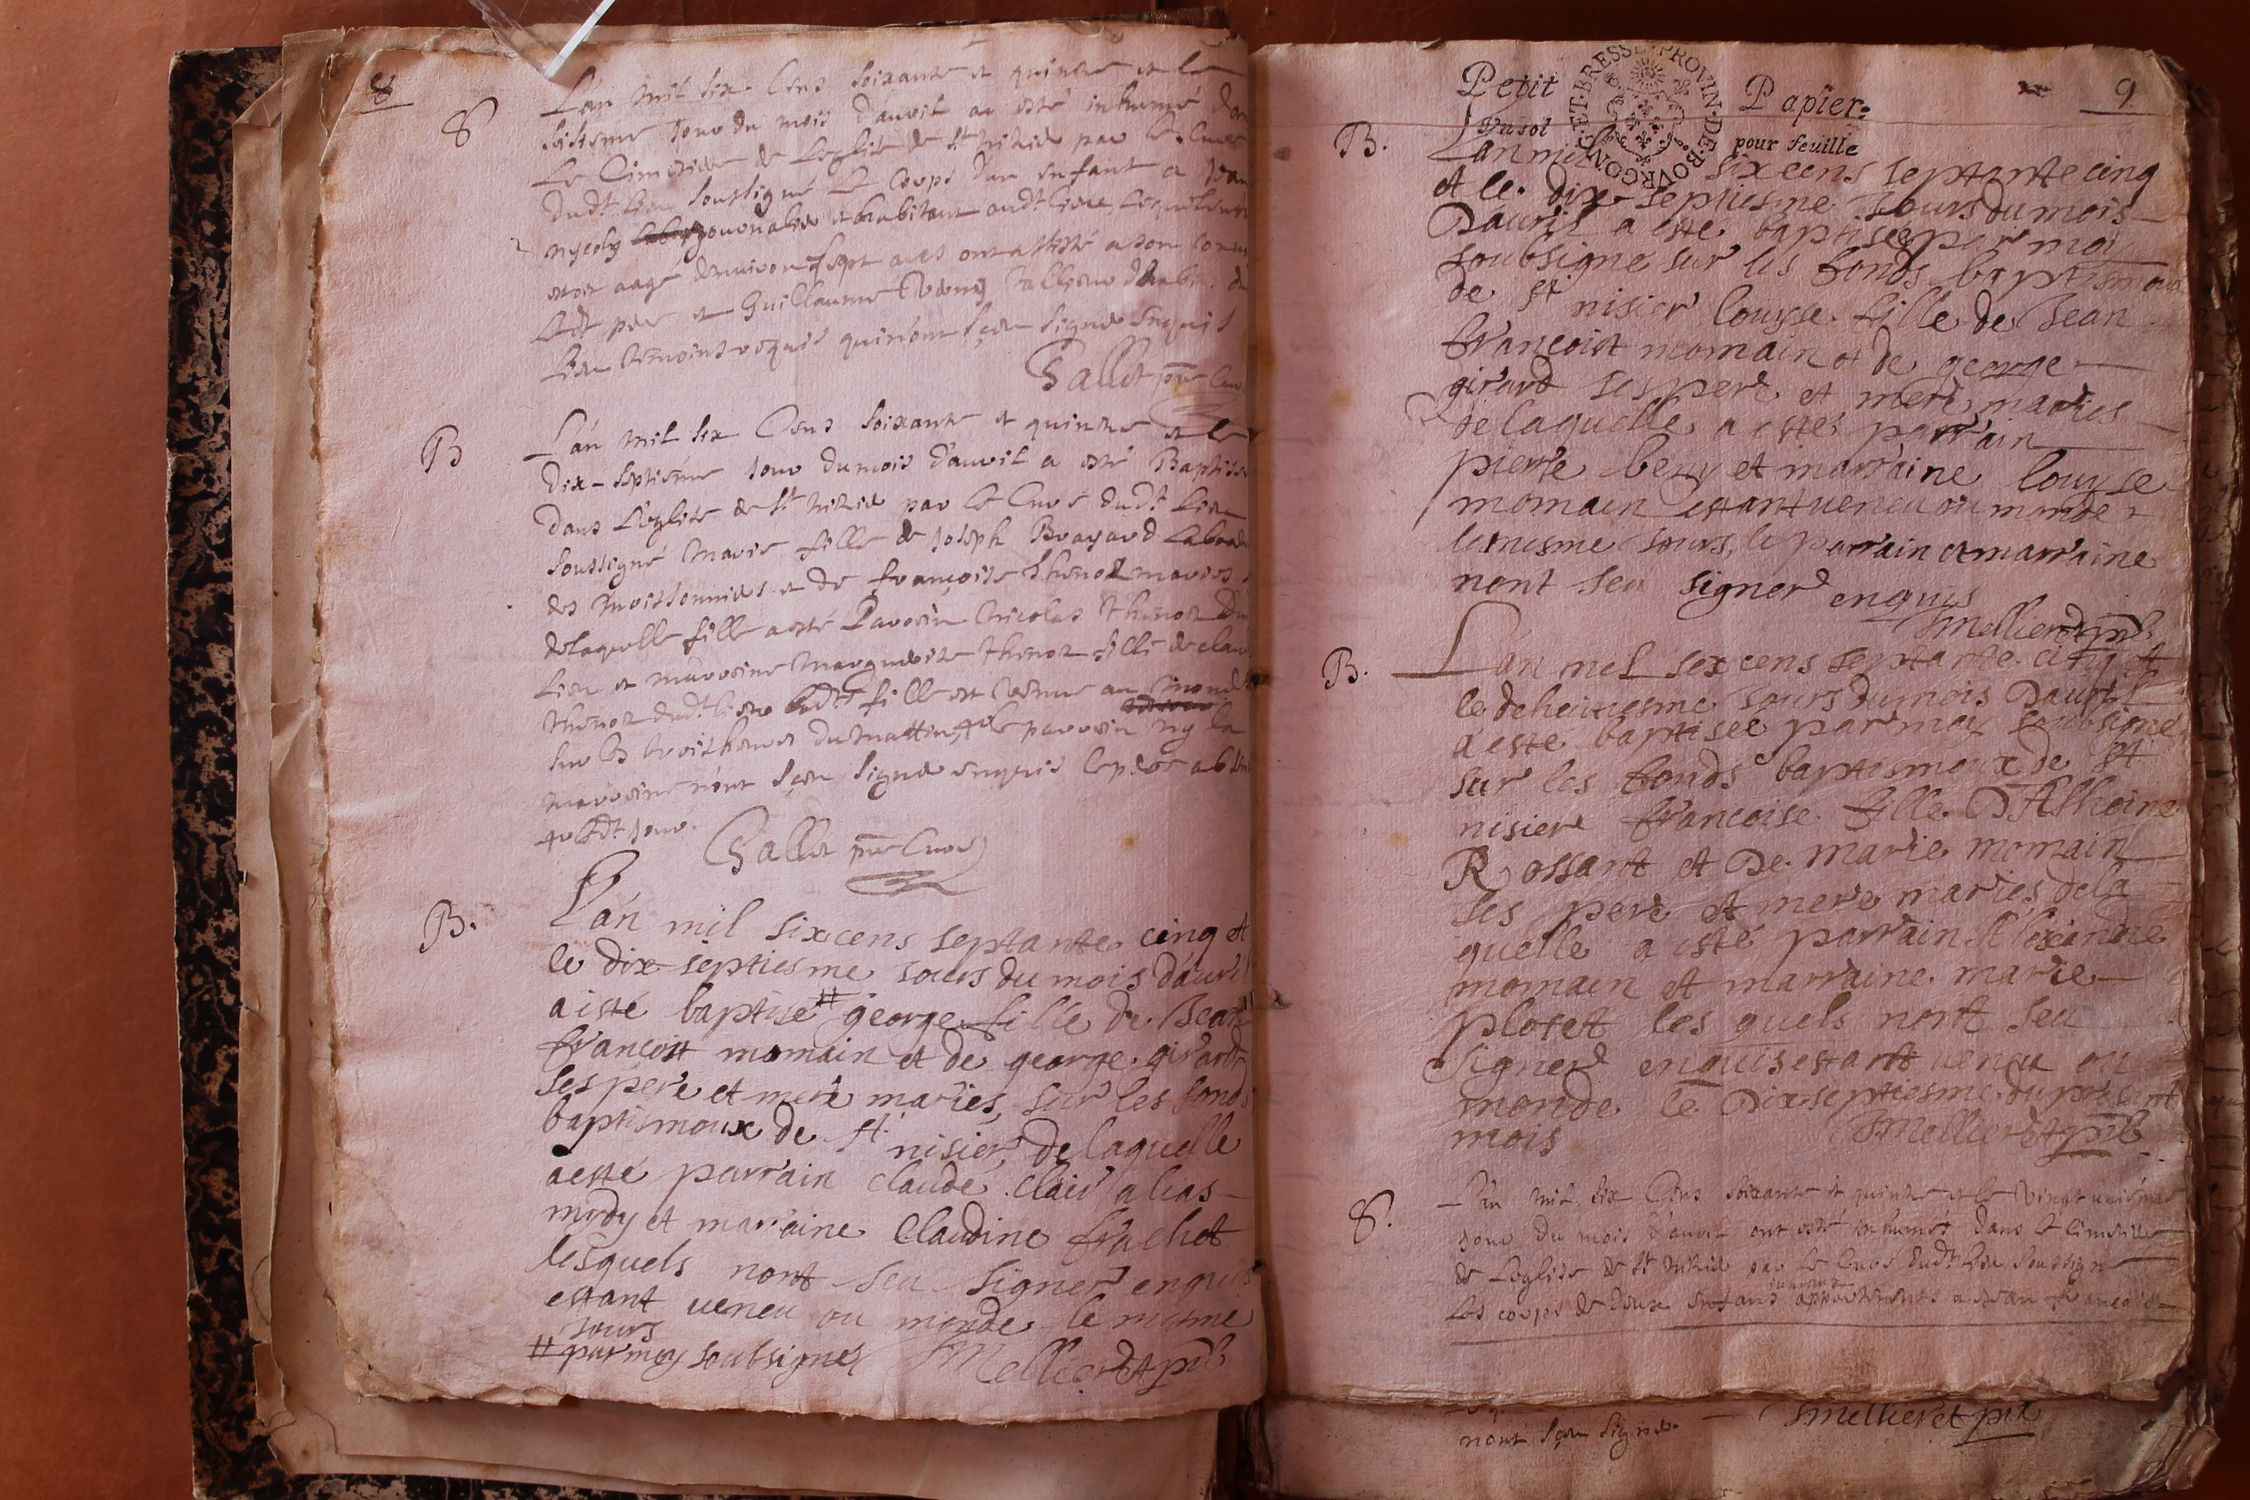 8
S
L'an mil six Cens soixante et quinze et le
jour du mois d'avril a esté inhumé dans
Le Cimetiere de L'eglise de st nizier par le Curé
dudt Lieu soussigné Le Corps d'un enfant a Jean
journalier et habitant audt Lieu, Lequel
aagé d'environ sept ans ont assisté a son
Ledt pere et Guillaume
Lieu temoins requis qui n'ont sçeu signer enquis
Gallet ptre Curé
B
L'an mil six Cens soixante et quinze et le
dix-septiéme jour du mois d'avril a esté Baptisée
dans L'eglise de st nizier par le Curé dudt Lieu
soussigné Marie fille de Joseph Brayard
des et de françoise thenoz mariés
de laquelle fille a esté Parrein Nicolas thenoz
Lieu et marreine Marguerite thenoz fille de
thenoz dudt Lieu ladte fille est venue au monde
sur les trois heures du mattin, le parrein ny la
marreine n'ont sçeu signer enquis le pere absent
ledt jour.
Gallet ptre Curé
B.
L'an mil six cens septante cinq et
le dix septiesme jours du mois d'avril
a esté baptisé # george fille de Jean
francoit momain et de george girard
ses pere et mere mariés, sur les fonds
baptismaux de st nisier, de laquelle
a esté parrain claude clair alias
mody et marraine Claudine frachet
lesquels nont seu signer enquis
estant veneu ou monde le mesme
jours
# par moy soubsigné Mellieret ptre
Petit Papier
9
pour feuille
GET BRESSE PROVIN DE BOVRGONG
B.
L'an mil six cens septante cinq
et le dix septiesme jours du mois
Davril a este baptisée par moi
soubsigné sur les fonds baptismaux
de st nisier louyse fille de Jean
francoist momain et de george
girard ses pere et mere mariés
de laquelle a esté parrain
pierre bezy et marraine louyse
momain estant veneu ou monde
le mesme jours, le parrain et marraine
nont seu signer enquis
Mellieret ptre
B.
L'an mil sex cens septante cinq et
le deheuiesme jours du mois Davril
a esté baptisée par moi soubsigné
sur les fonds baptismeaux de st
nisier francoise fille D'Athoine
Rossant et De marie momain
ses pere et mere mariés de la
quelle a esté parrain Alexandre
momain et marraine marie
plotet les quels nont seu
signer enquis estant veneu ou
monde le Dix septiesme du present
mois Mellieret ptre
S.
L'an mil six Cens soixante et quinze et le vingt uniéme
jour du mois d'avril ont esté inhumés dans le Cimetiere
de L'eglise de st nizier par le Curé dudt Lieu soussigné
les corps de deux enfans appartenants a Jean françois
nont sçeu signer Mellieret ptre